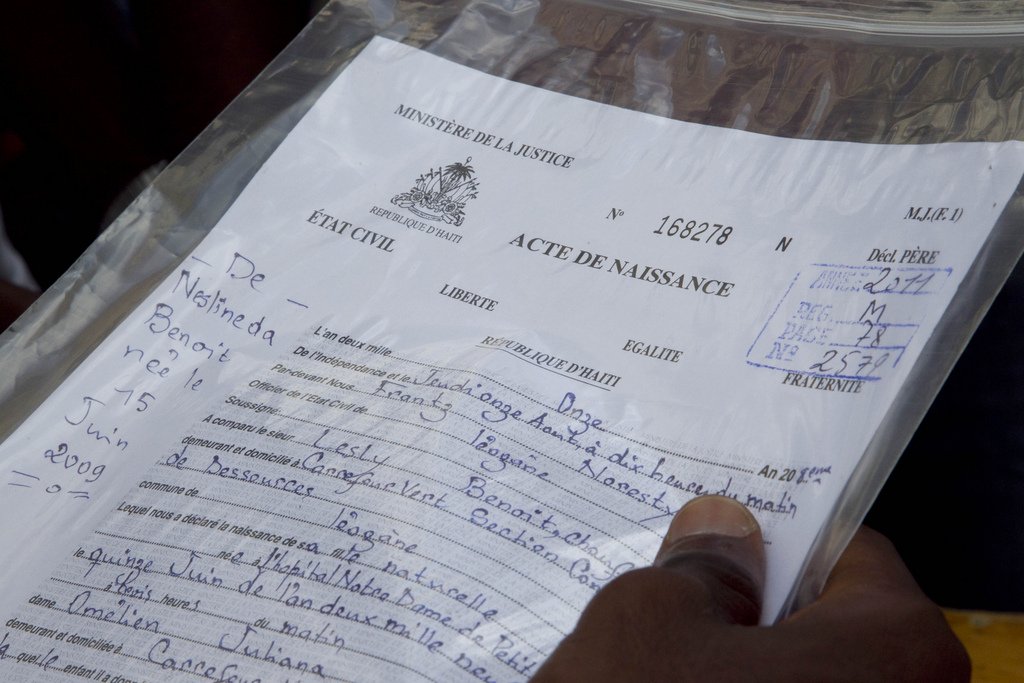 MINISTÈRE DE LA JUSTICE
RÉPUBLIQUE D'HAITI
ÉTAT CIVIL
N° 168278 N
M.J.(F. 1)
ACTE DE NAISSANCE
Décl. PÈRE
ANNEE 2011
REG. M
PAGE 78
Nº 2579
LIBERTE
EGALITE
FRATERNITE
RÉPUBLIQUE D'HAITI
- De -
Neslineda
Benoit
née le
15
Juin
2009
L'an deux mille Onze An 208eme
De l'Indépendance et le Jeudi onze Août à dix heures du matin
Par-devant Nous Frantz Noresty
Officier de l'Etat Civil de léogâne
Soussigné
A comparu le sieur Lesly Benoit,
demeurant et domicilié à Carrefour Vert Section
de Dessources
commune de léogâne
Lequel nous a déclaré la naissance de sa fille naturelle
née à l'hôpital Notre Dame de Petit
le quinze Juin de l'an deux mille neuf
heures du matin
dame Omélien Juliana
demeurant et domiciliée à
quelle enfant il a